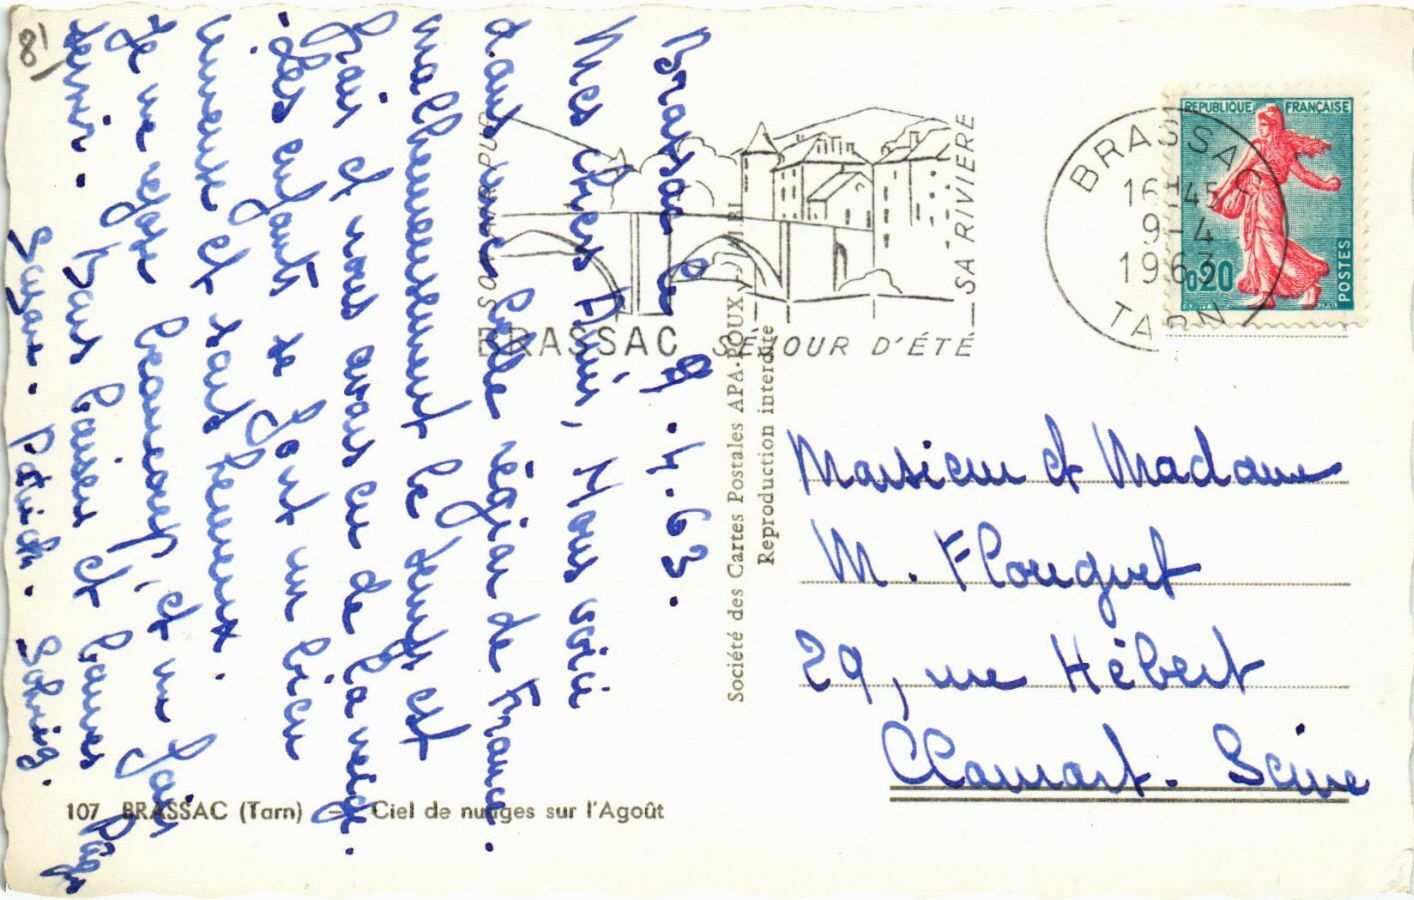 81
Brassac le 9.4.63.
Mes chers Amis, Nous voici
dans une belle région de France.
malheureusement le temps est
frais et nous avons eu de la neige.
Les enfants se font un bien
immense et sont heureux.
Je me repose beaucoup, et me fais
servir. Bons baisers et bonnes Pâques
Suzane. Patrick. Solveig.
SON PIC
SES SOUS MARINS
BRASSAC SÉJOUR D'ÉTÉ
SA RIVIERE
BRASSAC
16H45
9-4
1963
TARN
REPUBLIQUE FRANÇAISE
0,20
POSTES
Société des Cartes Postales APA-POUX ALBI
Reproduction interdite
Monsieur et Madame
M. Flouquet
29, rue Hébert
Clamart. Seine
107 BRASSAC (Tarn) Ciel de nuages sur l'Agoût